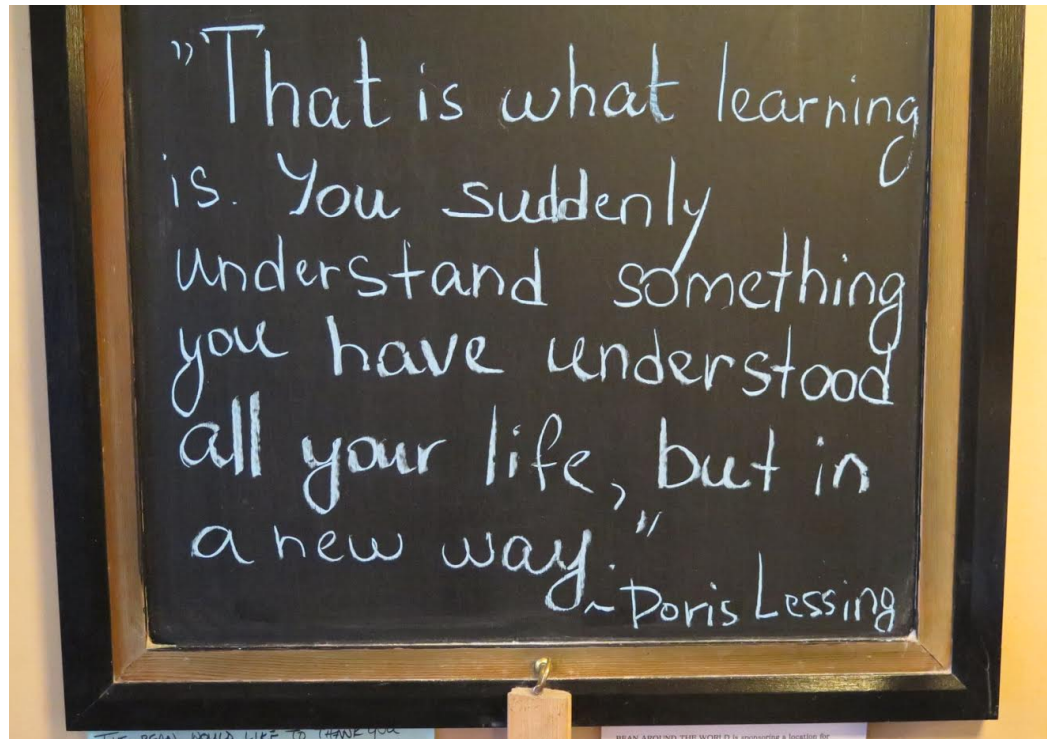 "That is what learning
is. You suddenly
understand something
you have understood
all your life, but in
a new way."
~Doris Lessing
THE BEAN WOULD LIKE TO THANK YOU
BEAN AROUND THE WORLD is sponsoring a location for